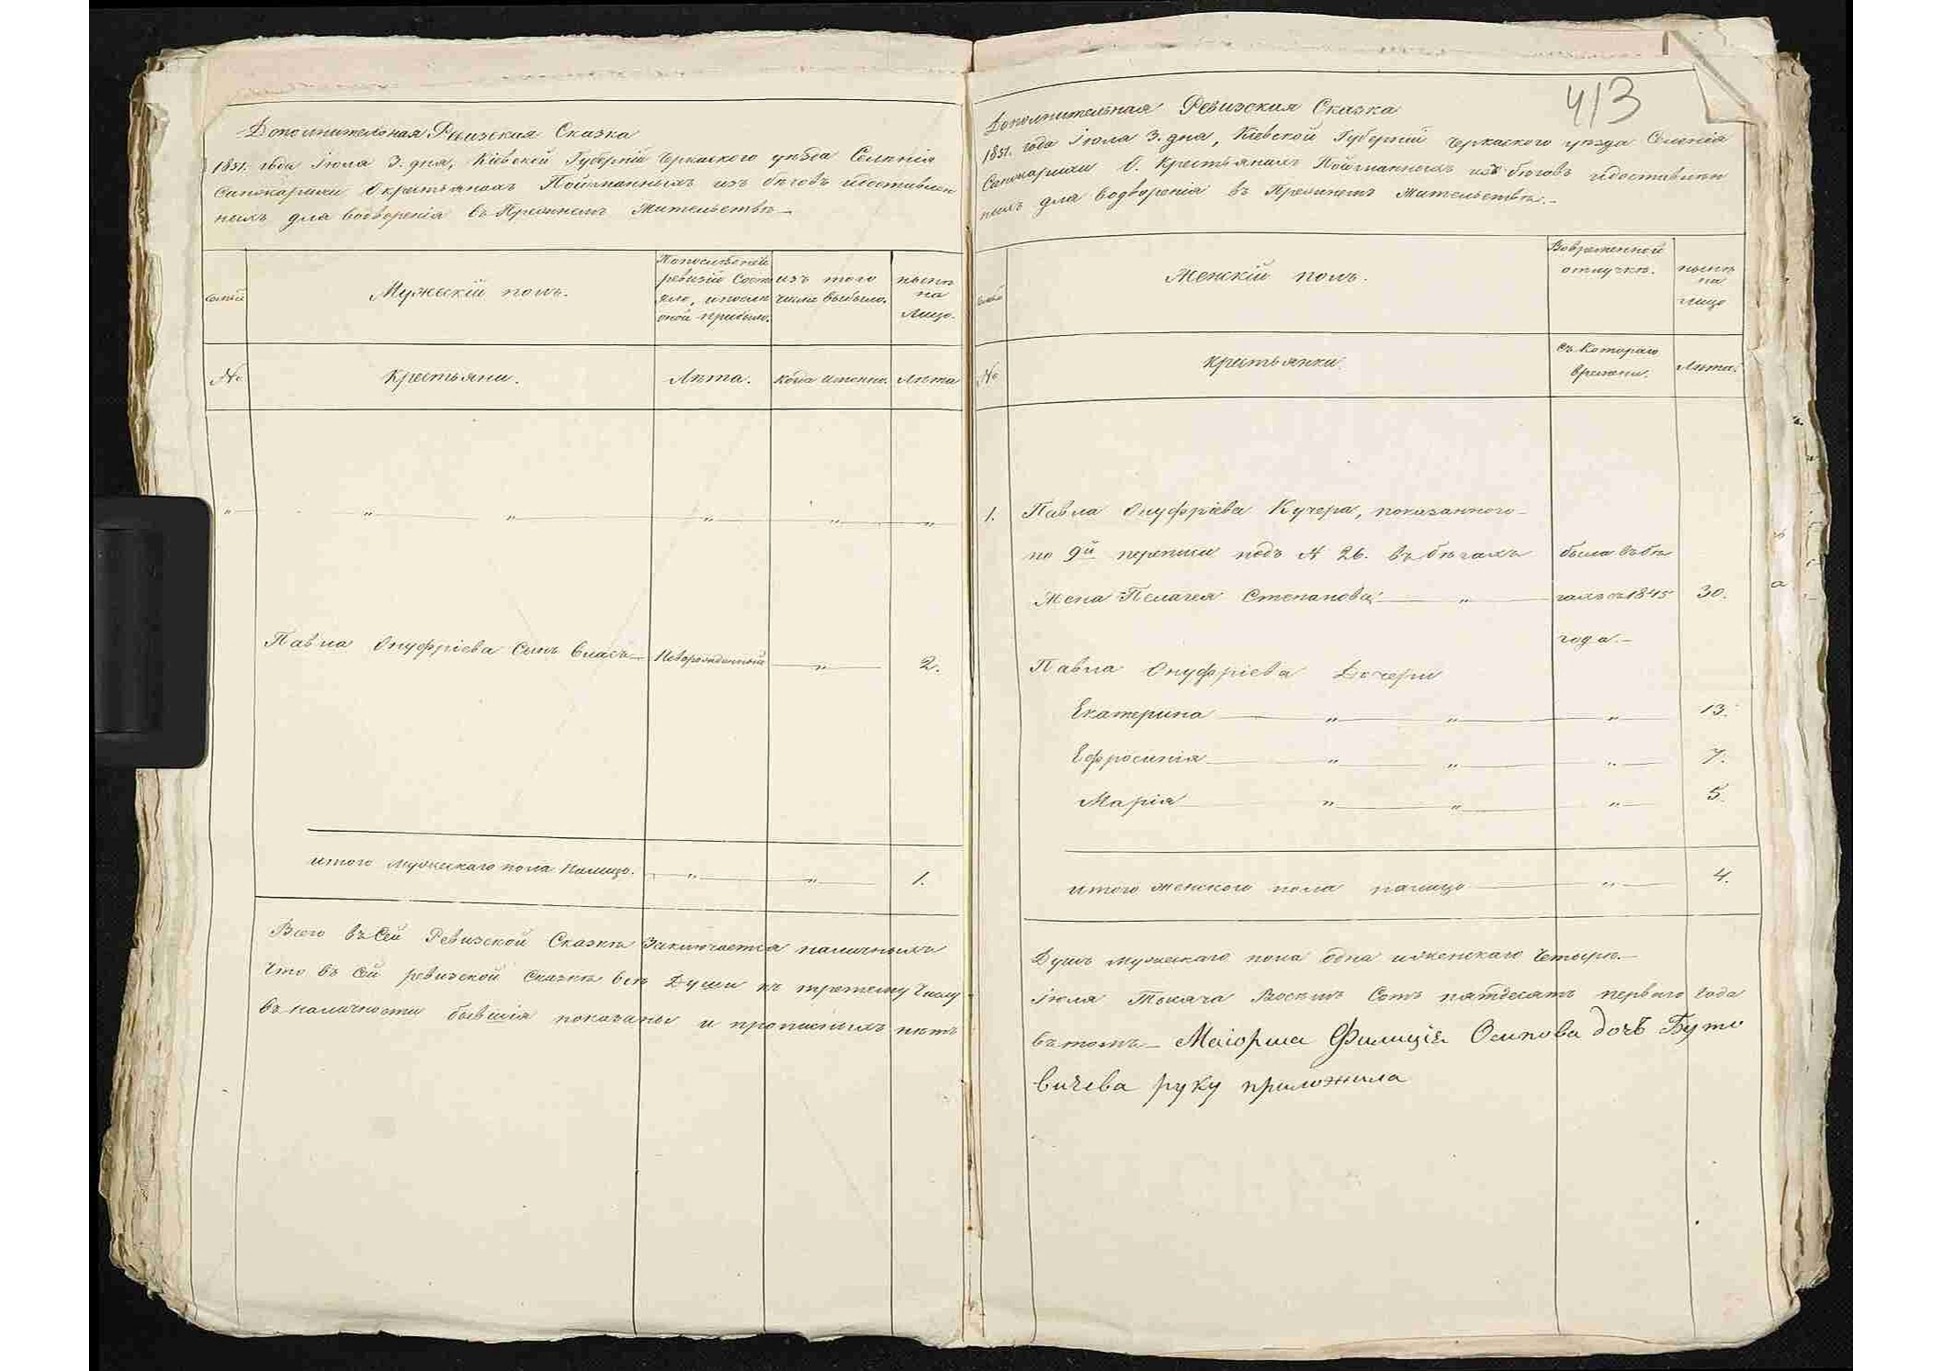 Дополнительная Ревизская Сказка
1851. года Іюля 3. дня, Кіевской Губерніи Черкаского уезда Селенія
Санжарихи О крестьянахъ Пойманныхъ изъ беговъ идоставлен
ныхъ для водворенія въ Прежнемъ Жительстве.
семьи
Мужескій полъ.
Попоследней
ревизіи Состо
яло, ипосле
оной прибыло.
изъ того
числа выбыло.
ныне
на
Лицо.
№
Крестьяни.
Лета.
когда именно.
Лета
Павла Онуфріева Сынъ Власъ Новорожденный 2.
итого мужескаго пола Налицо. 1.
Всего въ Сей Ревизской Сказке Заключается наличныхъ
Что въ сей ревизской сказке все Души къ третему Числу
въ наличности бывшія показаны и прописныхъ нетъ
413
Дополнительная Ревизская Сказка
1851. года Іюля 3. дня, Кіевской Губерніи Черкаского уезда Селенія
Санжарихи О. Крестьянахъ Пойманныхъ изъ беговъ идоставлен
ныхъ для водворенія въ Прежнемъ Жительстве.
семьи
Женскій полъ.
Вовременной
отлучке.
ныне
на
лицо
№
Крестьянки.
съ Котораго
времени.
Лета.
1. Павла Онуфріева Кучера, показанного
по 9й переписи подъ № 26. въ бегахъ была вбе
Жена Пелагея Степанова гахъ съ 1845 30.
года.
Павла Онуфріева Дочери
Екатерина 13.
Ефросинія 7.
Марія 5.
итого женского пола налицо 4.
Душъ мужескаго пола одна иженскаго Четыре.
Іюля Тысяча Восемь Сотъ пятдесятъ перваго Года
вътомъ Маіорша Филиція Осипова дочь Буто
вичева руку приложила